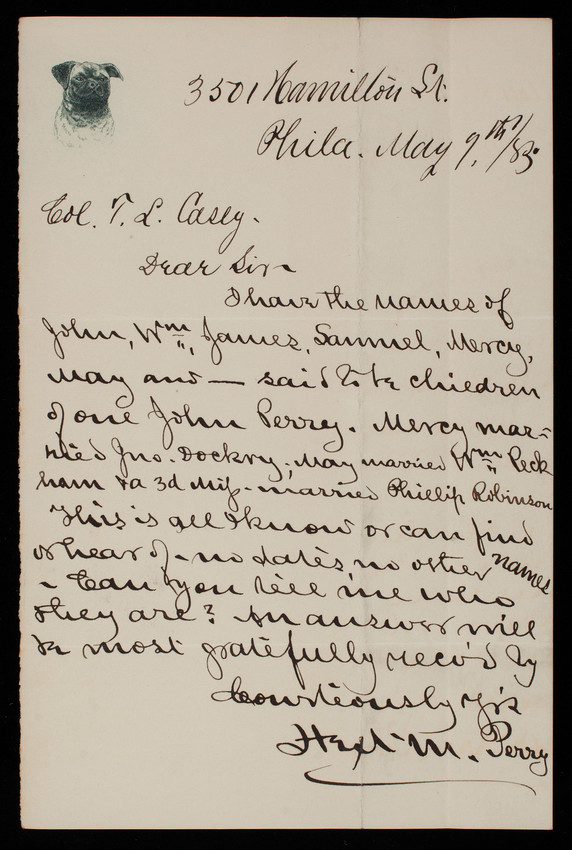 3501 Hamilton St.
Phila. May 9.th/83.
Col. T. L. Casey.
Dear Sir~
I have the names of
John, Wm, James, Samuel, Mercy,
May and — said to be children
of one John Perry. Mercy mar-
ried Jno. Dockry; May married Wm Peck
ham & a 3d Miss - married Phillip Robinson
This is all I know or can find
or hear of - no dates, no other names
- Can you tell me who
they are? An answer will
be most gratefully rec'd by
Courteously y'rs
M. Perry